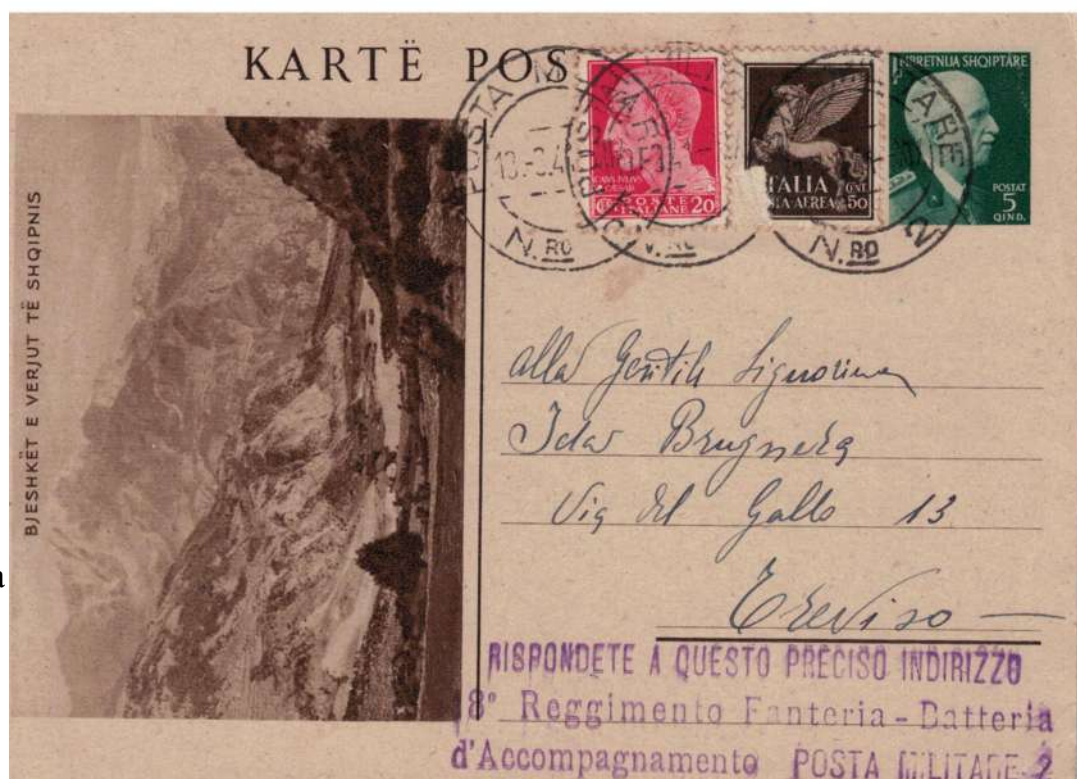 KARTË POS
BJESHKËT E VERJUT TË SHQIPNIS
POSTA M
13.-3.4
N.RO
N.RO
N.RO
2
CAIVS IVLIVS
CAESAR
POSTE
ITALIANE 20
ITALIA CENT.
POSTA AEREA 50
MBRETNIJA SHQIPTARE
POSTAT
5
QIND.
alla Gentile Signorina
Ida Brugnera
Via del Gallo 13
Treviso —
RISPONDETE A QUESTO PRECISO INDIRIZZO
8° Reggimento Fanteria - Batteria
d'Accompagnamento POSTA MILITARE 2
a